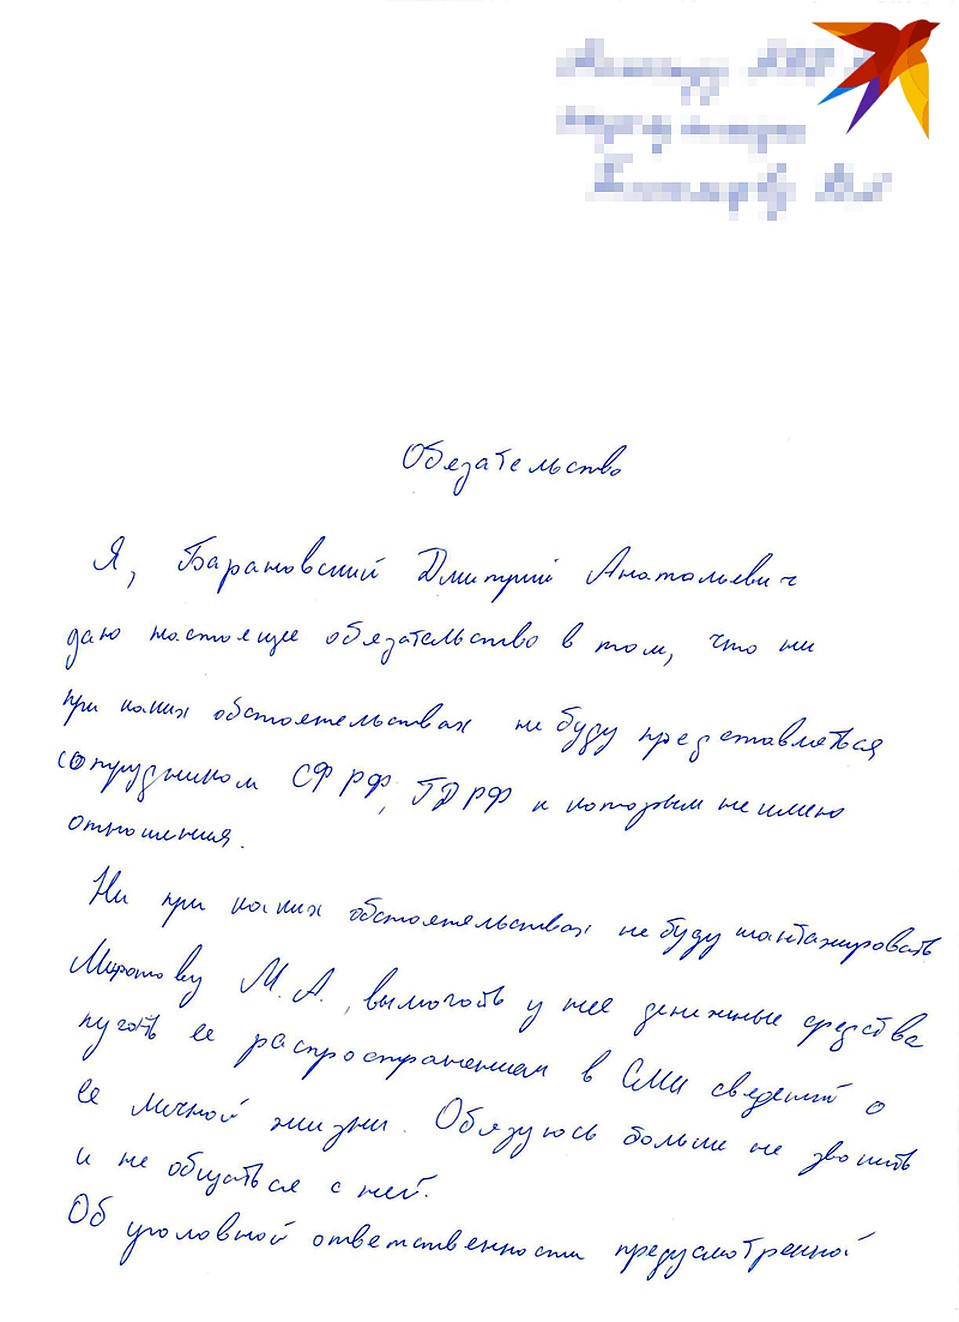 Обезательство
Я, Барановский Дмитрий Анатольевич
даю настоящее обязательство в том, что ни
при каких обстоятельствах не буду представляться
сотрудником СФ РФ, ГД РФ к которым не имею
отношения.
Ни при каких обстоятельствах не буду шантажировать
М. А., вымогать у нее денежные средства
пугать ее распространением в СМИ сведений о
ее личной жизни. Обязуюсь больше не звонить
и не общаться с ней.
Об уголовной ответственности предусмотренной